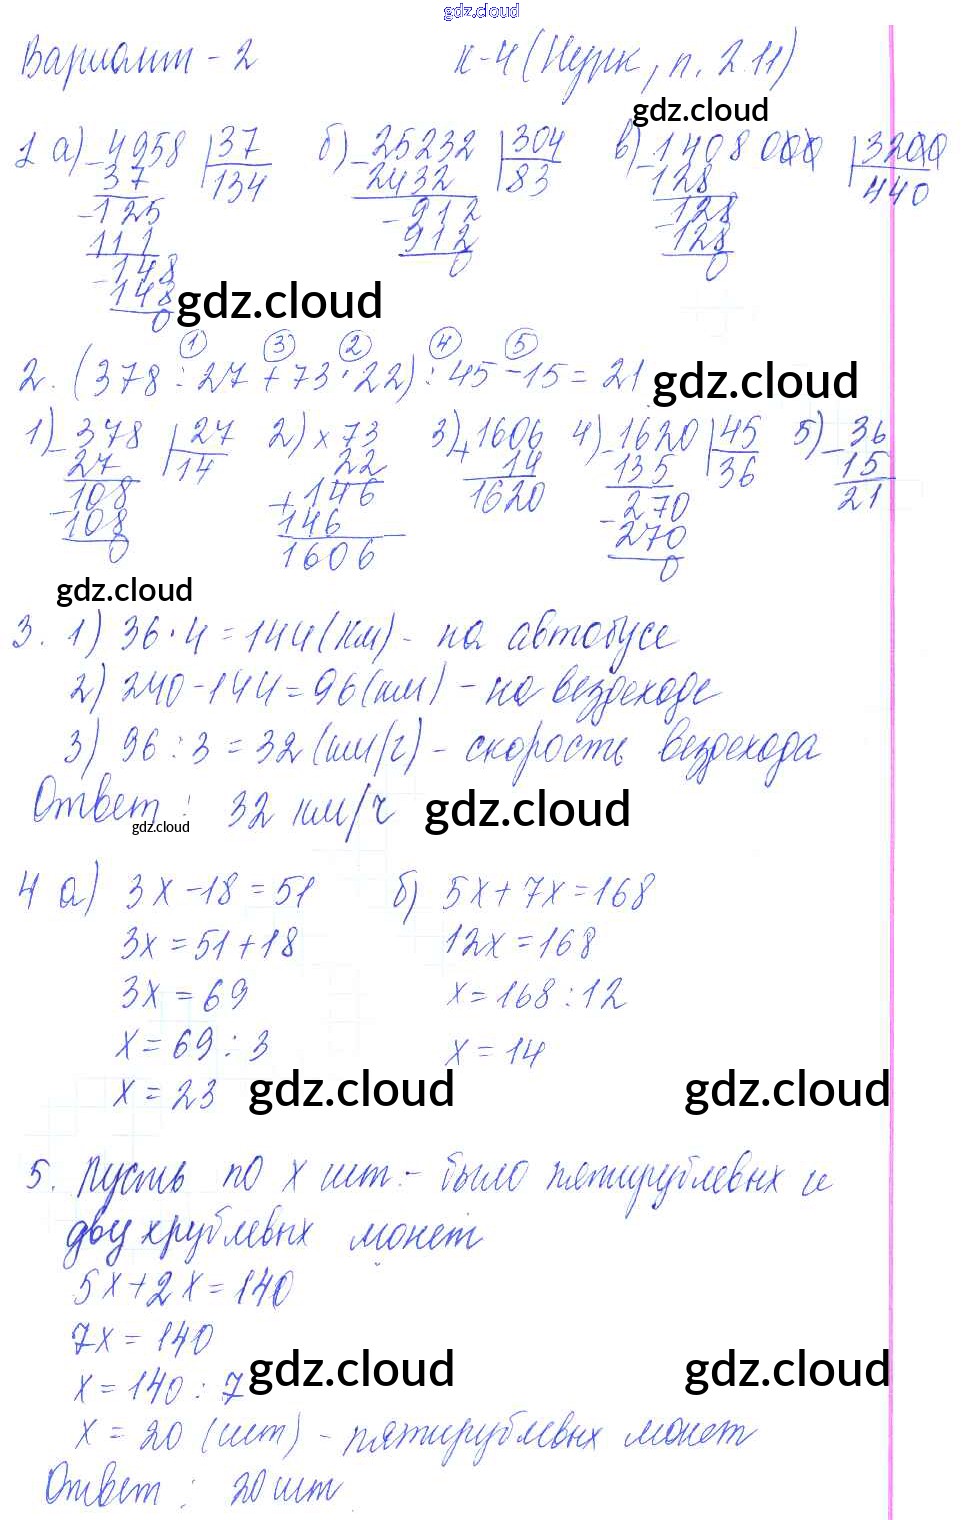 gdz.cloud
Вариант - 2 К-4 (Нурк, п. 2.11)
gdz.cloud
1 а) -4958 | 37 б) -25232 | 304 в) -1408000 | 3200
37 134 2432 83 128 440
-125 -912 -128
111 912 128
-148 0 0
148
0
gdz.cloud
1 3 2 4 5
2. (378 : 27 + 73 · 22) : 45 - 15 = 21
gdz.cloud
1) -378 | 27 2) x 73 3) +1606 4) -1620 | 45 5) -36
27 14 22 14 135 36 15
-108 +146 1620 -270 21
108 146 270
0 1606 0
gdz.cloud
3. 1) 36 · 4 = 144 (км) - на автобусе
2) 240 - 144 = 96 (км) - на вездеходе
3) 96 : 3 = 32 (км/г) - скорость вездехода
Ответ : 32 км/ч
gdz.cloud
gdz.cloud
4 а) 3x - 18 = 51 б) 5x + 7x = 168
3x = 51 + 18 12x = 168
3x = 69 x = 168 : 12
x = 69 : 3 x = 14
x = 23
gdz.cloud gdz.cloud
5. Пусть по x шт. - было пятирублевых и
двухрублевых монет
5x + 2x = 140
7x = 140
x = 140 : 7
gdz.cloud gdz.cloud
x = 20 (шт) - пятирублевых монет
Ответ : 20 шт